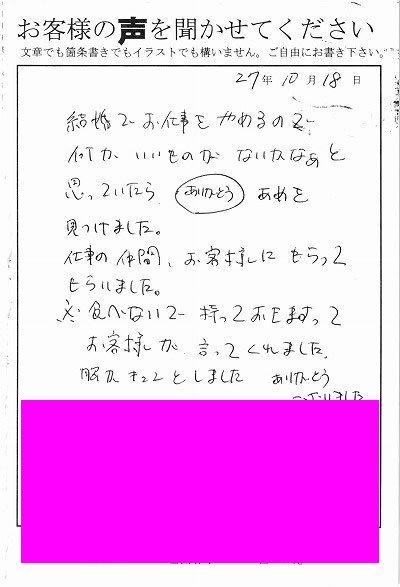 お客様の声を聞かせてください
文章でも箇条書きでもイラストでも構いません。ご自由にお書き下さい。
27年10月18日
結婚でお仕事をやめるので
何かいいものがないかなぁと
思っていたら ありがとう あめを
見つけました。
仕事の仲間、お客様にもらって
もらいました。
食べないで持っておきますって
お客様が言ってくれました。
胸がキュンとしました ありがとう
ございました